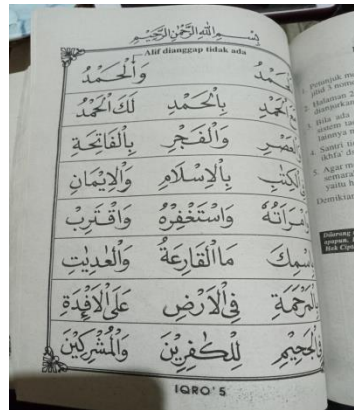 بِسْمِ اللهِ الرَّحْمٰنِ الرَّحِيْمِ
Alif dianggap tidak ada
وَالْحَمْدُ
بِالْحَمْدِ لَكَ الْحَمْدُ
وَالْفَجْرِ بِالْفَاتِحَةِ
بِالْاِسْلَامِ وَالْاِيْمَانِ
وَاسْتَغْفِرْهُ وَاقْتَرِبْ
مَاالْقَارِعَةُ وَالْعٰدِيٰتِ
فِى الْاَرْضِ عَلَى الْاَفْـِٕدَةِ
لِلْكٰفِرِيْنَ وَالْمُشْرِكِيْنَ
IQRO' 5
1. Petunjuk
jilid 3
2. Halaman 2
dianjurkan
3. Bila ada
sistem
lainnya
4. Santri
ikhfa'
5. Agar
yaitu
Demikian
Dilarang
apapun
Hak Cipta